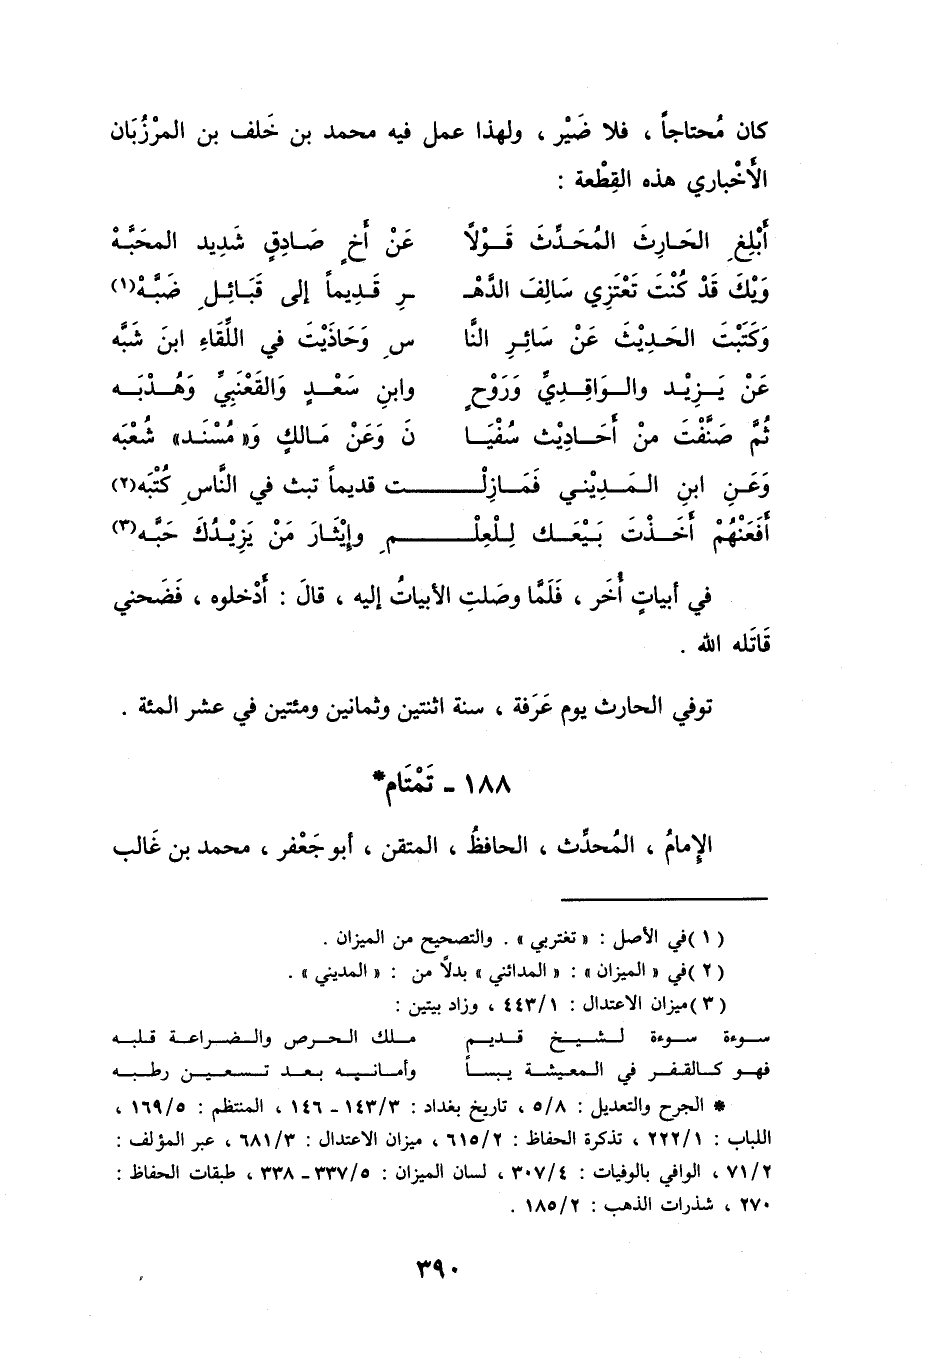 كان مُحتاجاً ، فلا ضَيْر ، ولهذا عمل فيه محمد بن خَلف بن المرْزُبَان
الأَخْباري هذه القِطْعة :
أَبْلِغِ الحَارِثَ المُحَدِّثَ قَوْلاً عَنْ أَخٍ صَادِقٍ شَدِيد المحَبَّهْ
وَيْكَ قَدْ كُنْتَ تَعْتَزِي سَالِفَ الدَّهْـ ـرِ قَدِيماً إلى قَبَائِلِ ضَبَّهْ(١)
وَكَتَبْتَ الحَدِيْثَ عَنْ سَائِرِ النَّا سِ وَحَاذَيْتَ في اللِّقَاءِ ابنَ شَبَّه
عَنْ يَزِيْد والواقِدِيِّ وَرَوْحٍ وابنِ سَعْدٍ وَالقَعْنَبِيِّ وَهُدْبَه
ثُمَّ صَنَّفْتَ منْ أَحَادِيْث سُفْيَا نَ وَعَنْ مَالكٍ وَ« مُسْنَد» شُعْبَه
وَعَنِ ابنِ المَدِيْني فَمَازِلْت قديماً تبث في النَّاسِ كُتْبَه(٢)
أَفَعَنْهُمْ أَخَذْتَ بَيْعَك لِلْعِلْمِ وإيْثَارَ مَنْ يَزِيْدُكَ حَبَّه(٣)
في أبياتٍ أُخَر ، فَلَمَّا وصَلتِ الأبياتُ إليه ، قالَ : أَدْخلوه ، فَضَحني
قَاتَله الله .
توفي الحارث يوم عَرَفة ، سنة اثنتين وثمانين ومئتين في عشر المئة .
١٨٨ - تَمْتَام*
الإِمامُ ، المُحدِّث ، الحافظُ ، المتقن ، أبو جَعْفر ، محمد بن غَالب
(١)في الأصل : « تغتربي» . والتصحيح من الميزان .
(٢)في « الميزان» : « المدائني» بدلاً من : « المديني» .
(٣)ميزان الاعتدال : ٤٤٣/١ ، وزاد بيتين :
سوءة سوءة لشيخ قديم ملك الحرص والضراعة قلبه
فهو كالقفر في المعيشة يبساً وأمانيه بعد تسعين رطبه
* الجرح والتعديل : ٥/٨ ، تاريخ بغداد : ١٤٣/٣ - ١٤٦ ، المنتظم : ١٦٩/٥ ،
اللباب : ٢٢٢/١ ، تذكرة الحفاظ : ٦١٥/٢ ، ميزان الاعتدال : ٦٨١/٣ ، عبر المؤلف :
٧١/٢ ، الوافي بالوفيات : ٣٠٧/٤ ، لسان الميزان : ٣٣٧/٥ - ٣٣٨ ، طبقات الحفاظ :
٢٧٠ ، شذرات الذهب : ١٨٥/٢ .
٣٩٠